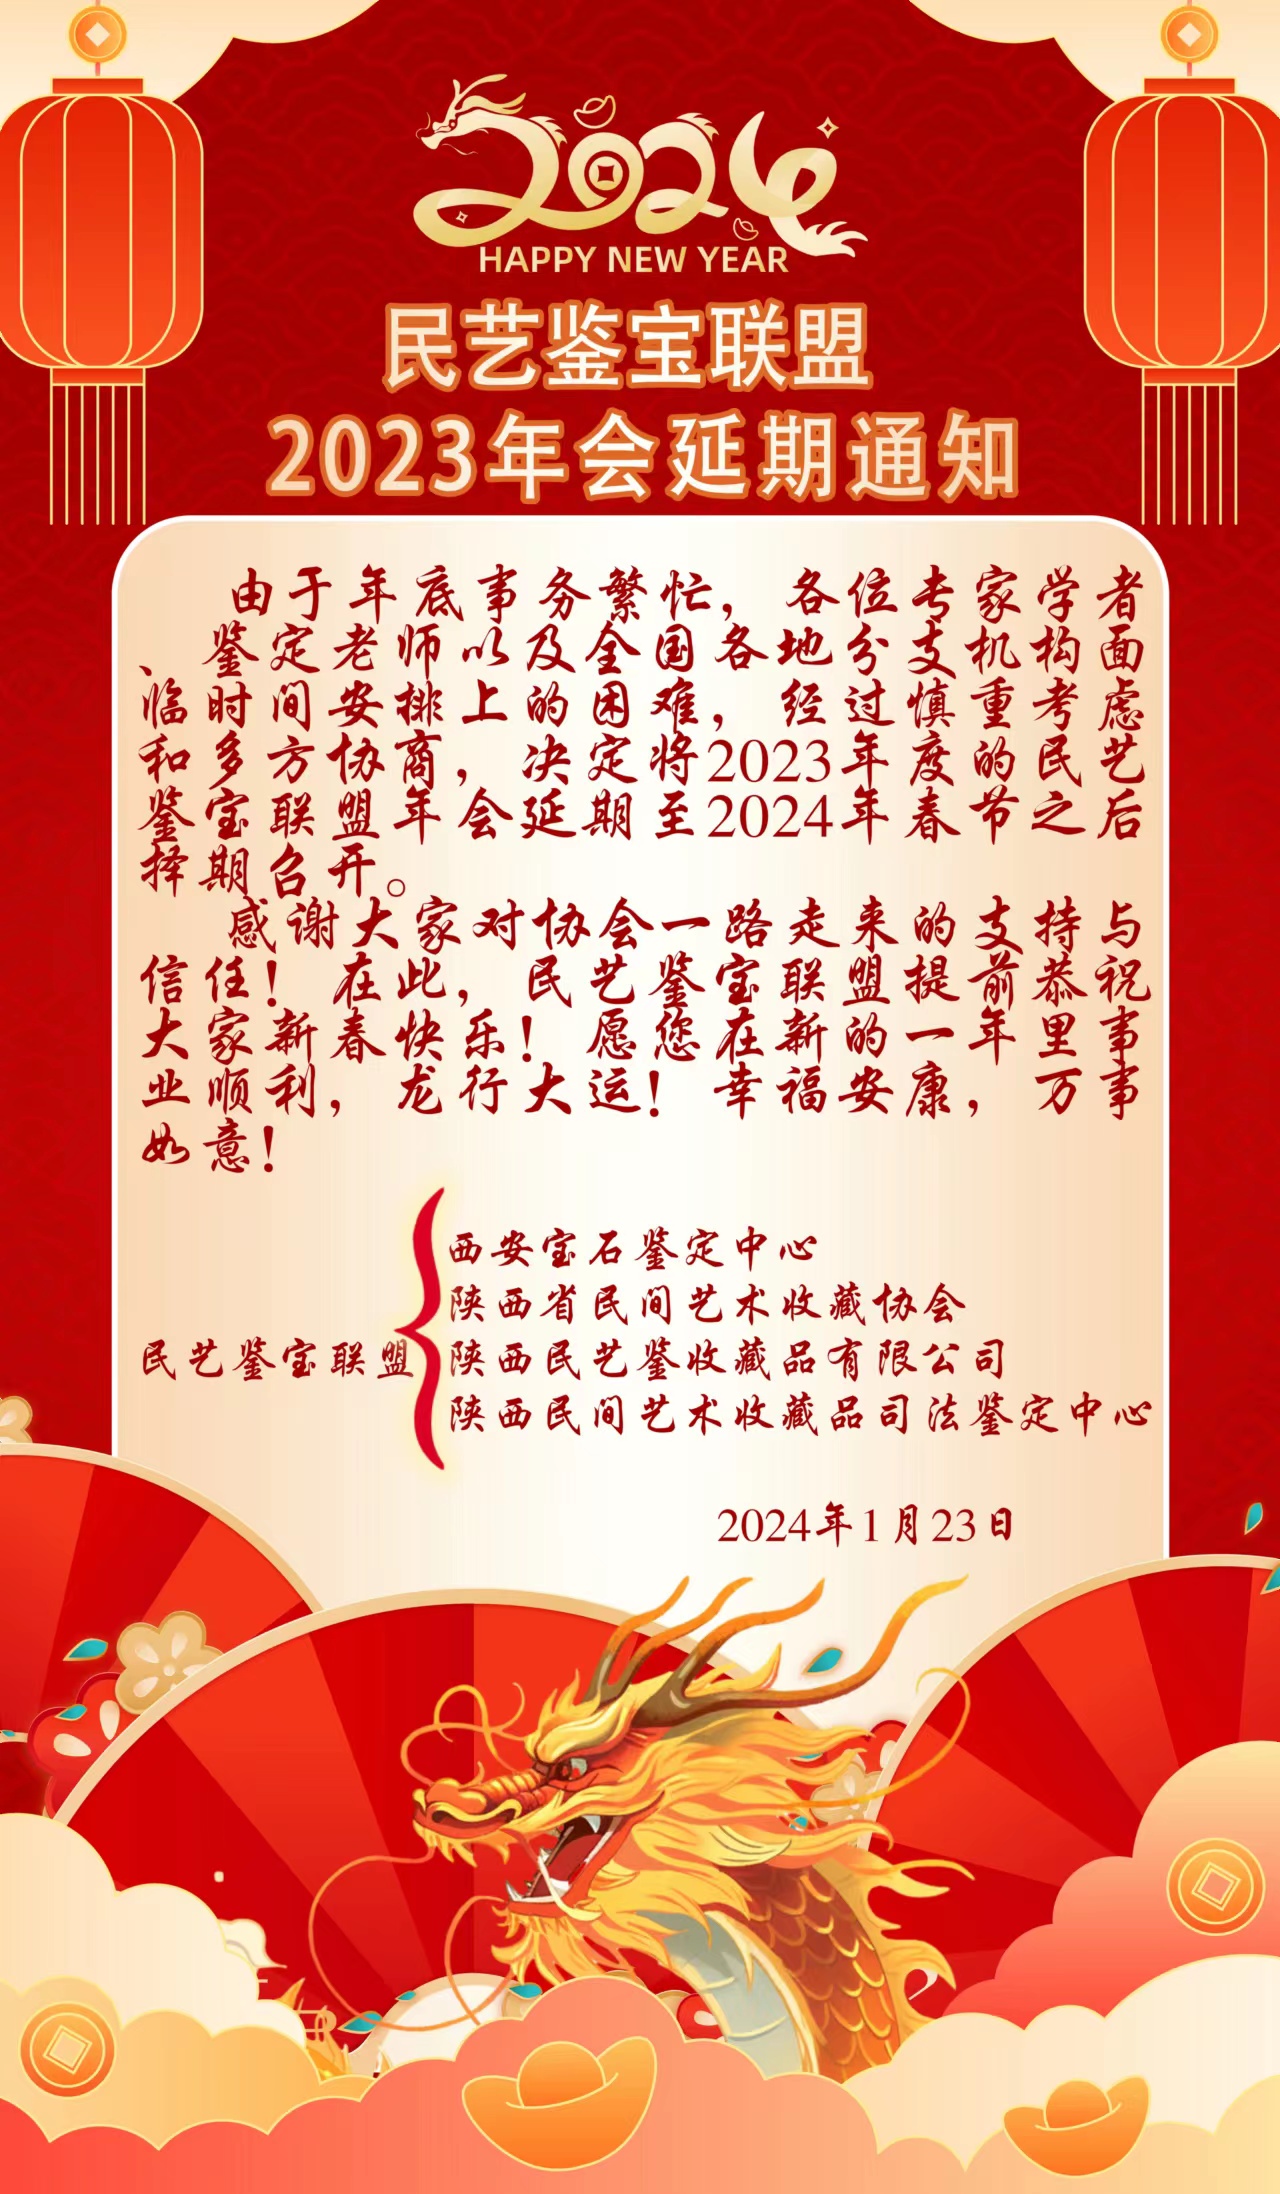 2024
HAPPY NEW YEAR
民艺鉴宝联盟
2023年会延期通知
由于年底事务繁忙，各位专家学者
、鉴定老师以及全国各地分支机构面
临时间安排上的困难，经过慎重考虑
和多方协商，决定将2023年度的民艺
鉴宝联盟年会延期至2024年春节之后
择期召开。
感谢大家对协会一路走来的支持与
信任！在此，民艺鉴宝联盟提前恭祝
大家新春快乐！愿您在新的一年里事
业顺利，龙行大运！幸福安康，万事
如意！
西安宝石鉴定中心
陕西省民间艺术收藏协会
民艺鉴宝联盟 陕西民艺鉴收藏品有限公司
陕西民间艺术收藏品司法鉴定中心
2024年1月23日